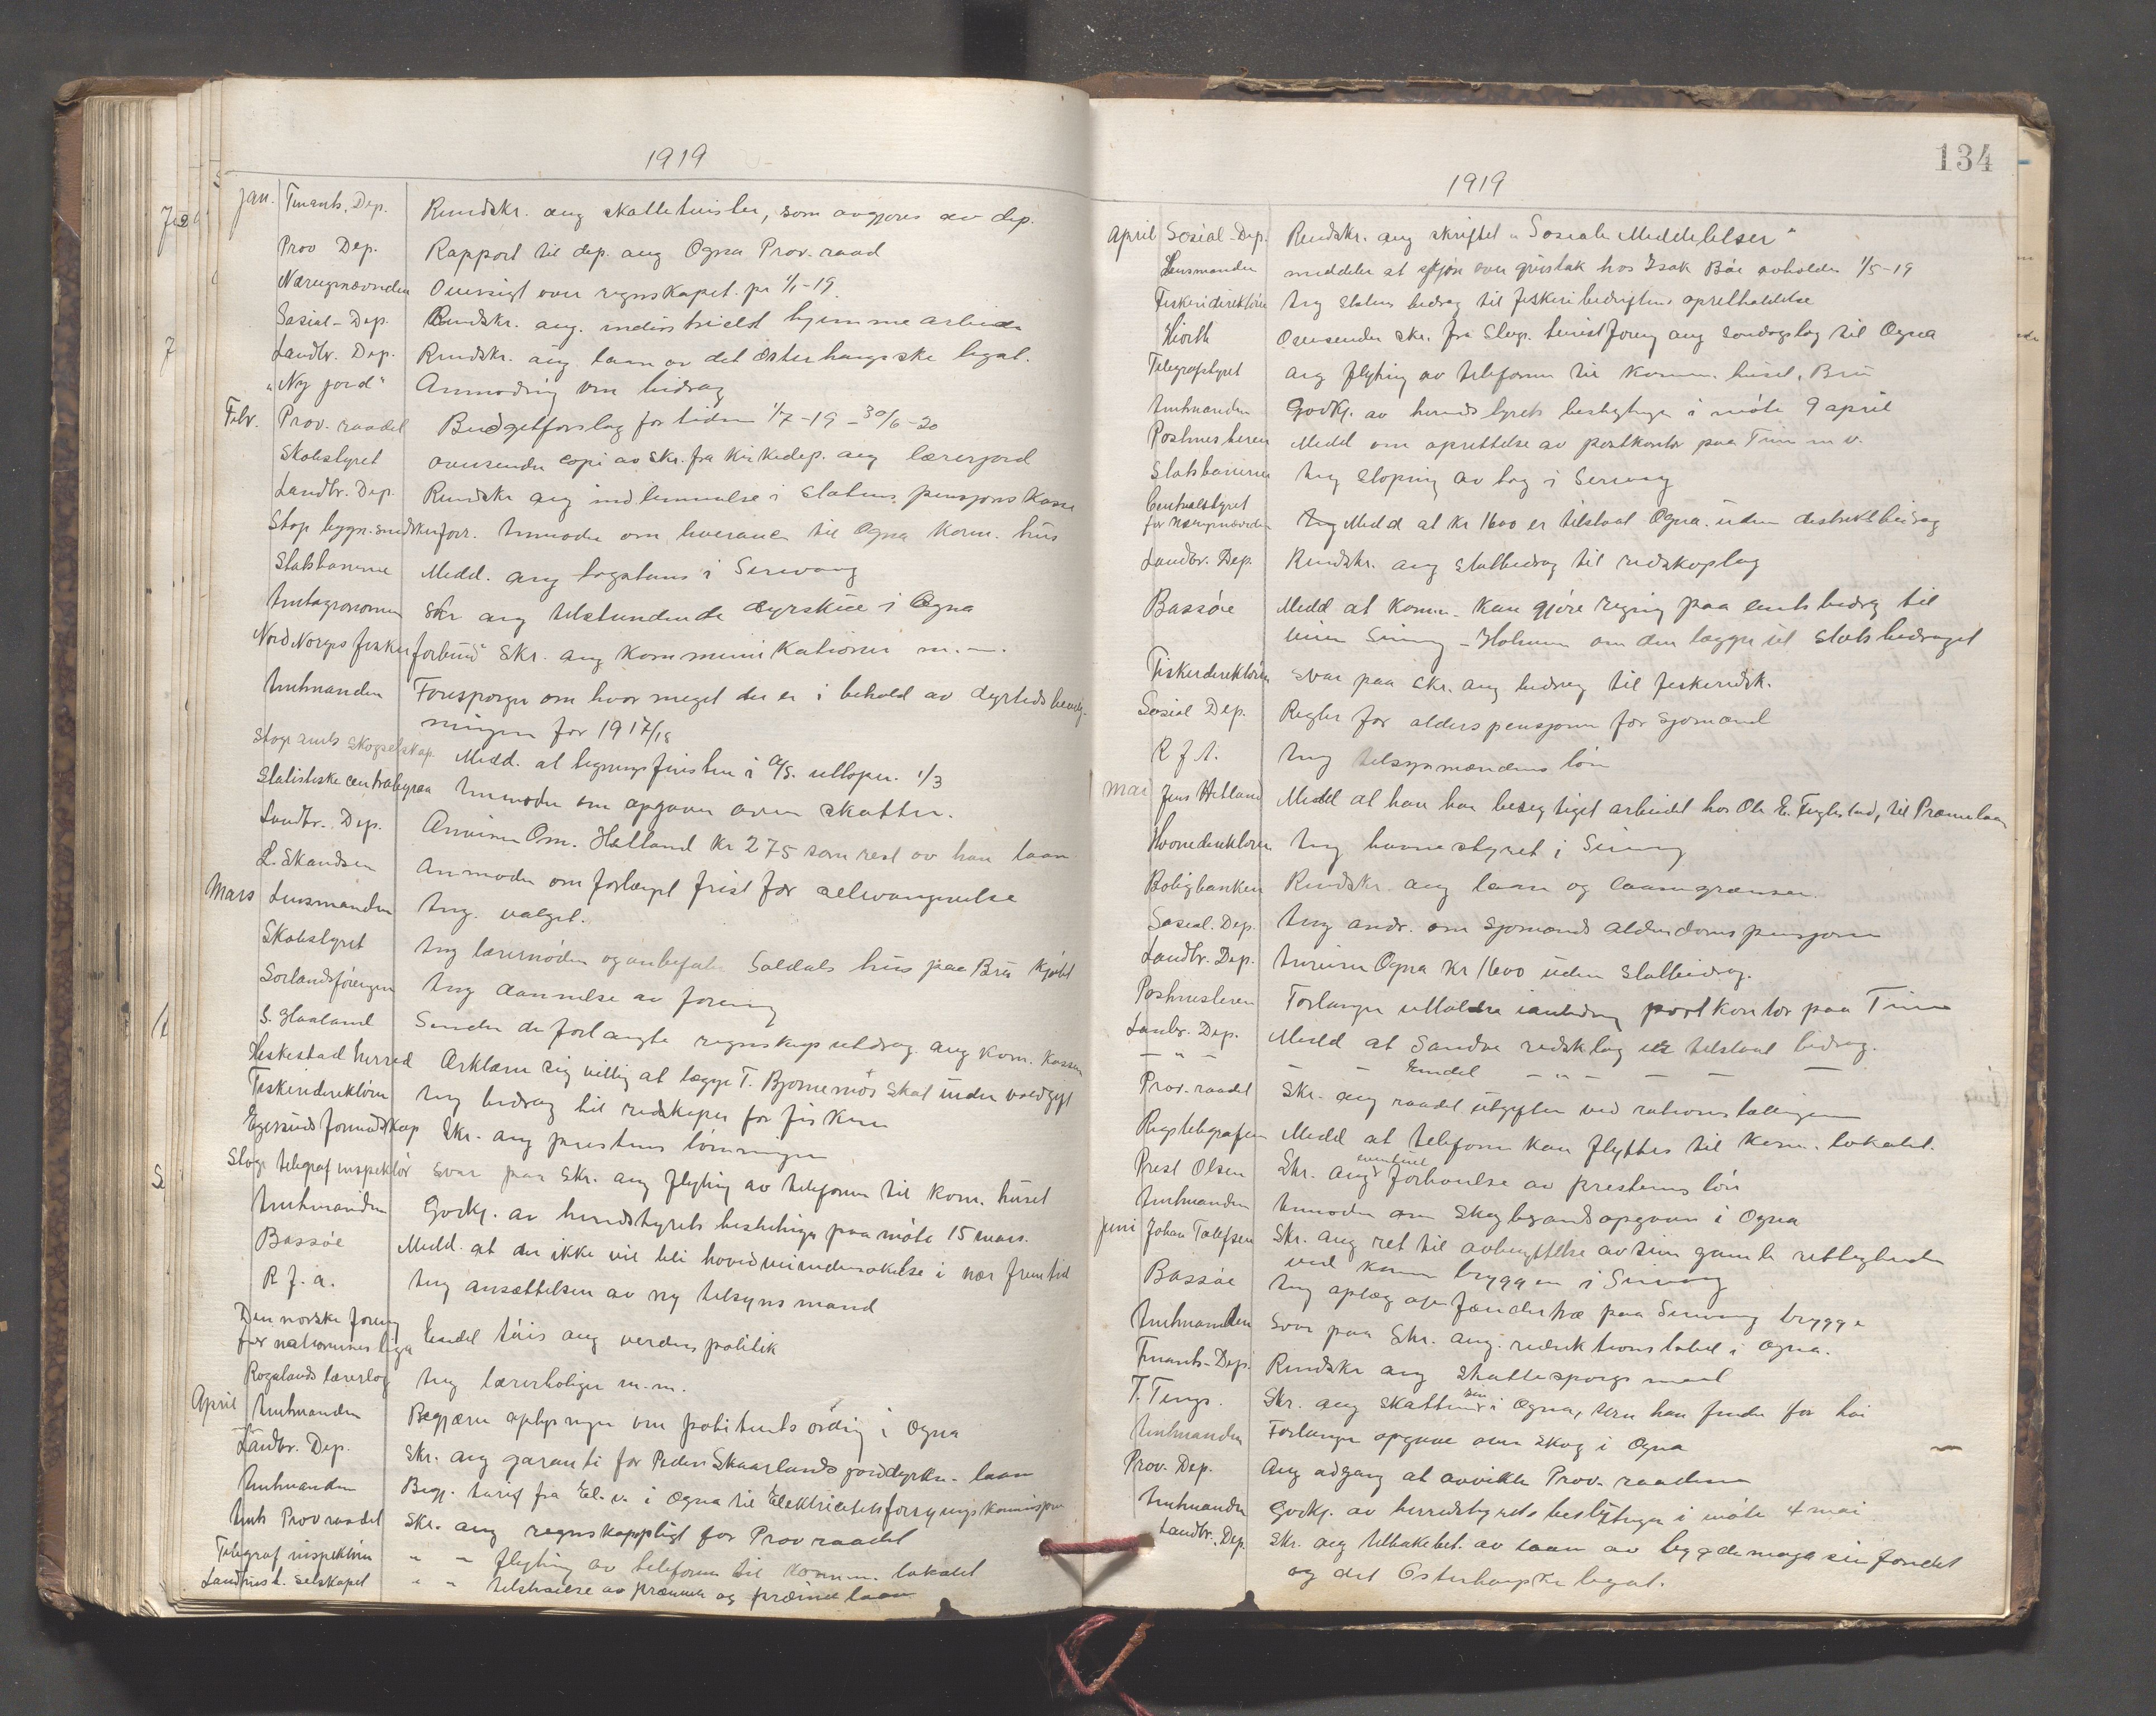 1919
jan. Finants. Dep. Rundskr. ang skattetvister, som avgjøres av dep.
Prov Dep. Rapport til dep. ang Ogna Prov. raad
Næringsnævnden Oversigt over regnskapet pr 1/1-19.
Sosial-Dep. Rundskr. ang. industrield hjemmearbeide
Landbr. Dep. Rundskr. ang laan av det Østerhaugske legat.
"Ny jord" Anmodning om bidrag
Febr. Prov. raadet Budgetforslag for tiden 1/7-19 - 30/6-20
Skolestyret oversender copi av skr. fra Kirkedep. ang lærerjord
Landbr. Dep. Rundskr ang indlemmelse i Statens pensjonskasse
Stop bygn. snedkerforr. Anmoder om leverance til Ogna Kom. hus
Statsbanerne Medd. ang togstans i Sirevaag
Amtagronomen Skr ang tilstundende dyrskue i Ogna
Nord Norges fiskerforbund Skr. ang kommunikationer m.-.
Amtmanden Forespørger om hvor meget der er i behold av dyrtidsbevilg-
ningen for 1917/18
Stav. amts skogselskap Medd. at tegningsfristen i A/S. utløper. 1/3
Statistiske centralbyraa Anmoder om opgaver over skatter.
Landbr. Dep. Anviser Om. Hælland Kr 275 som rest av hans laan
L. Skandsen Anmoder om forlænget frist for
Mars Lensmanden Ang. valget.
Skolestyret Ang lærernøden og anbefaler Soldals hus paa Bru kjøbt
Sørlandsforeningen Ang dannelse av forening
S. Haaland Sender de forlangte regnskapsutdrag ang kom. kassen
Heskestad herred Erklærer sig villig at lægge T. Bjørnemos skat under voldgift
Fiskeridirektøren Ang bidrag til redskaper for fiskere
Egersunds formandskap Skr. ang prestens lønninger
Stavg. telegraf inspektør Svar paa Skr. ang flytning av telefonen til kom. huset
Amtmanden Godkj. av herredstyrets beslutninger paa møte 15 mars.
Bassøe Medd. at der ikke vil bli hovedveiundersøkelse i nær fremtid
R f. a. Ang ansættelsen av ny tilsynsmand
Den norske forening
for nationernes liga Endel tais ang verdens politik
Rogalands lærerlag Ang lærerboliger m.m.
April Amtmanden Begjærer oplysninger om politiets ordning i Ogna
Landbr. Dep. Skr. ang garanti for Peder Skaarlands jorddyrkn. laan
Amtmanden Begj. tarif fra El. v. i Ogna til Elektricitetsforsyningskomisjon
Amts Provraadet Skr. ang regnskappligt for Provraadet
Telegraf inspektøren " - flytning av telefonen til Komm. lokalet
Landhush. selskapet " - tilstaaelse av præmier og præmielaan
134
1919
April Sosial-Dep. Rundskr. ang skriftet "Sosiale Meddelelser"
Lensmanden meddeler at skjøn over grustak hos Isak Bøe avholdes 1/5-19
Fiskeridirektøren Ang Statens bidrag til fiskeribedriftens opretholdelse
Hiorth Oversender skr. fra Stavg. turistforeng ang søndagstog til Ogna
Telegrafstyret ang flytning av telefonen til Komm. huset, Bru
Amtmanden Godkj. av herredstyrets beslutninger i møte 9 april
Postmesteren Medd om oprettelse av postkontor paa Time m v.
Statsbanerne Ang stoping av tog i Sirevaag
Centralstyret
for Næringsnævnden Ang Medd at Kr 1600 er tilstaat Ogna uden distriktsbidrag
Landbr. Dep. Rundskr. ang statbidrag til redskaplag
Bassøe Medd at Komm. Kan gjøre regning paa amtsbidrag til
veien Sirevg - Holmen om den lægger ut Statsbidraget
Fiskerdirektøren Svar paa skr. ang bidrag til fiskeridsk.
Sosial Dep. Regler for alderspensjonen for sjømænd
R f A. Ang tilsynsmandens løn
Mai Jens Hetland Medd at han har besegtiget arbeidet hos Ole E. Fuglestad, til Præmielaan
Havnedirektøren Ang havnestyret i Sirevg
Boligbanken Rundskr. ang laan og laanegrænser.
Sosial. Dep. Ang andr. om Sjømands alderdomspensjonen
Landbr. Dep. Anviser Ogna Kr 1600 uden Statbidrag.
Postmesteren Forlanger uttalelse i anledning postkontor paa Time
Lanbr. Dep. Medd at Sandve redsklag er tilstaat bidrag.
- " - Emdal - " - - - -
Prov. raadet Skr. ang raadet utgifter ved rationstællingen
Rigstelegrafen Medd at telefonen kan flyttes til Kom. lokalet.
Prest Olsen Skr. ang eventuel forhøielse av prestens løn
Amtmanden Anmoder om Skogbrandsopgaver i Ogna
Juni Johan Tolefsen Skr. ang ret til avbenyttelse av sine gamle rettigheder
ved kom bryggen i Sirevaag
Bassøe Ang oplæg av fendertræ paa Sirevaag brygge
Amtmanden Svar paa Skr. ang. reduktionstabel i Ogna.
Finants-Dep. Rundskr ang Skattespørgsmaal
T. Tengs. Skr. ang skatten sin i Ogna, som han finder for høi
Amtmanden Forlanger opgave over Skog i Ogna
Prov. Dep. Ang adgang at avvikle Prov. raadene
Amtmanden Godkj. av herredstyrets beslutninger i møte 4 mai
Landbr. Dep. Skr. ang tilbakebet. av laan av bygdemagasinfondet
og det Østerhaugske legat.